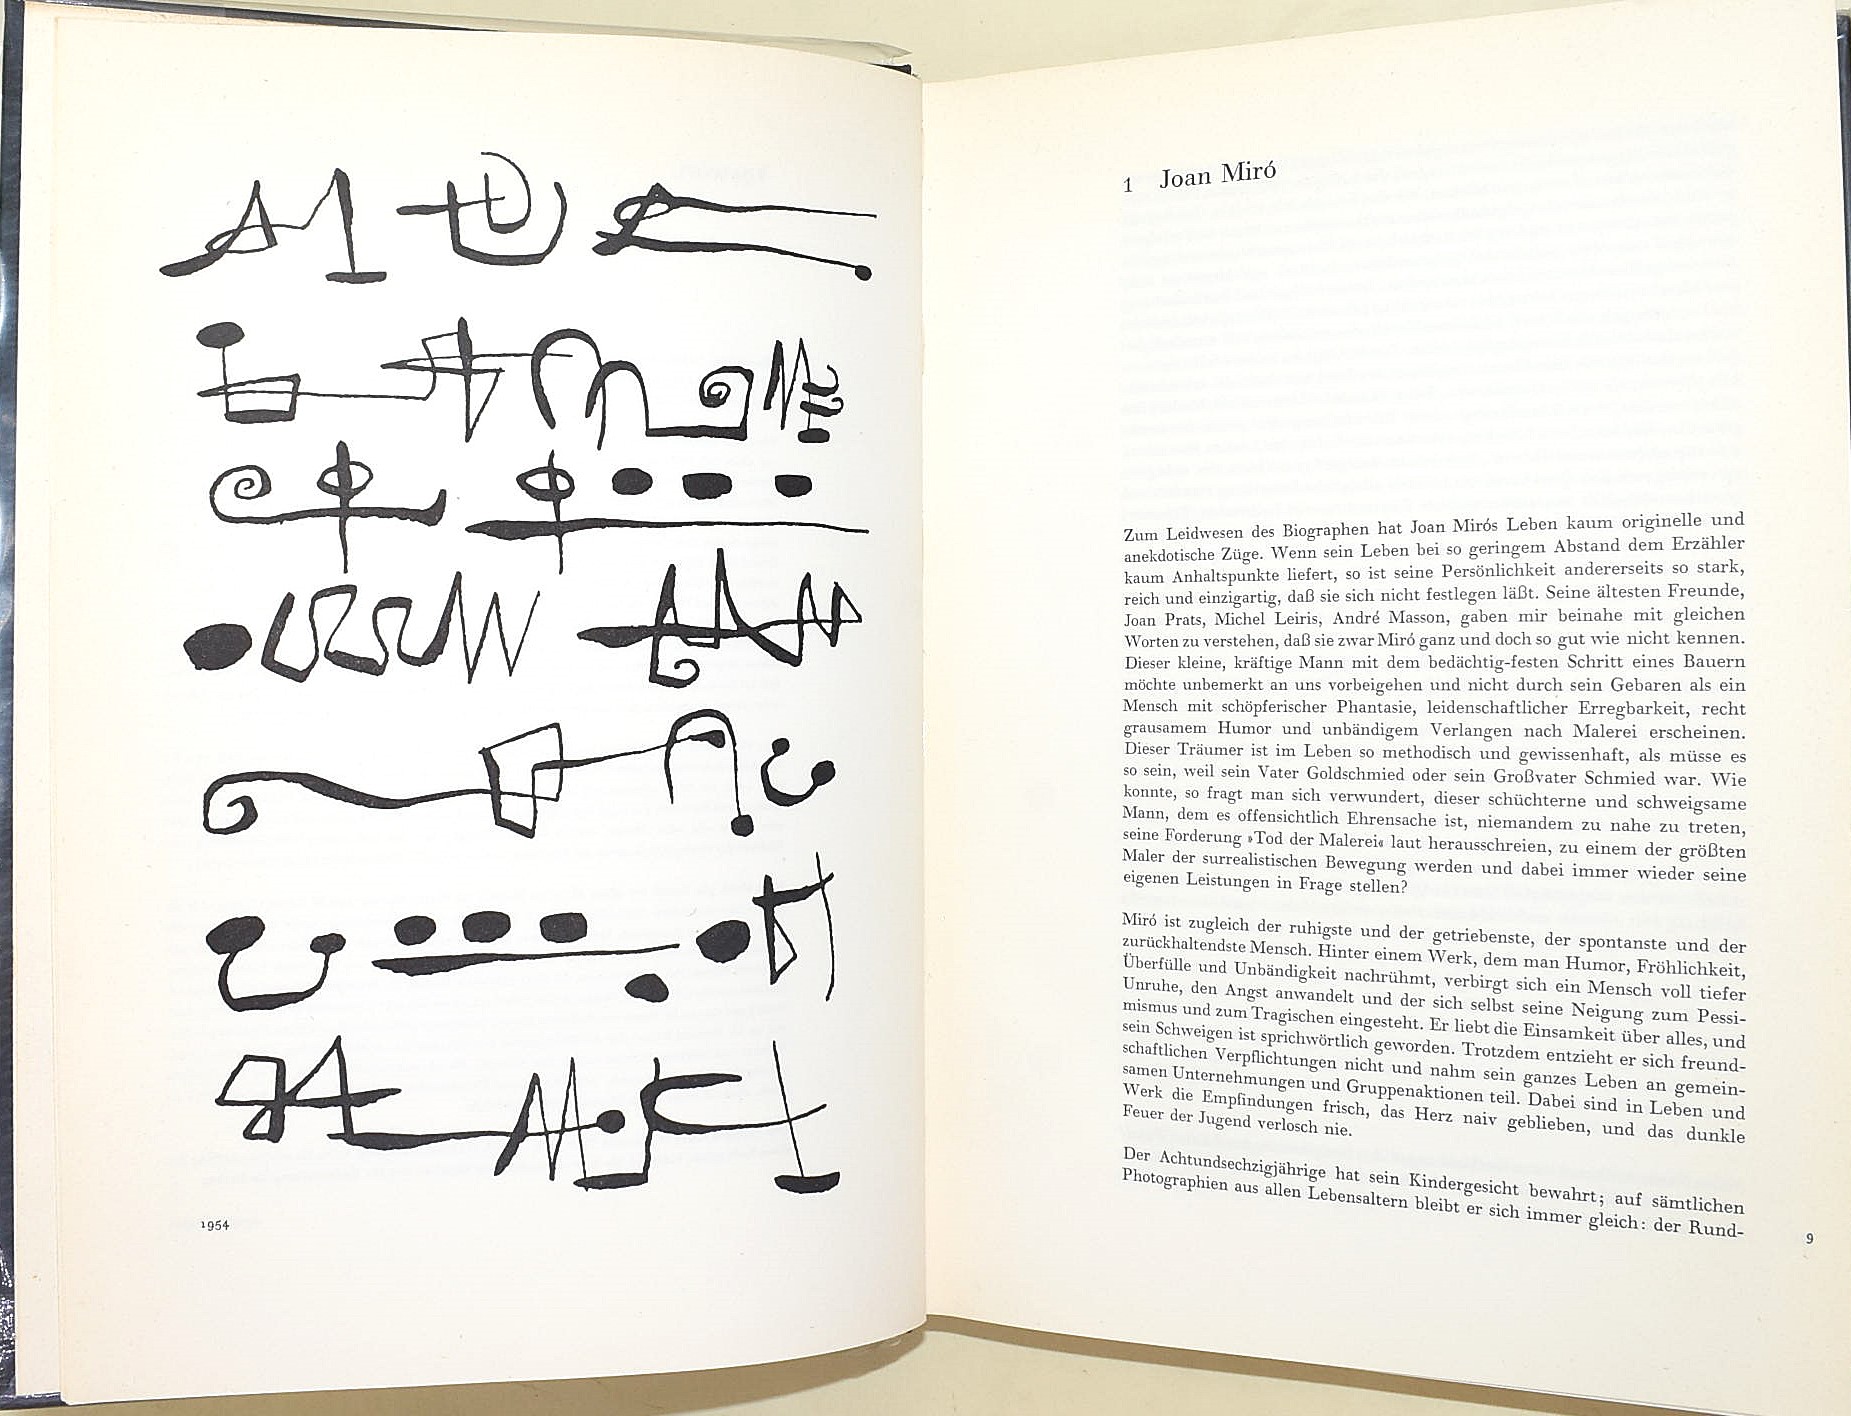 1954
1 Joan Miró
Zum Leidwesen des Biographen hat Joan Mirós Leben kaum originelle und
anekdotische Züge. Wenn sein Leben bei so geringem Abstand dem Erzähler
kaum Anhaltspunkte liefert, so ist seine Persönlichkeit andererseits so stark,
reich und einzigartig, daß sie sich nicht festlegen läßt. Seine ältesten Freunde,
Joan Prats, Michel Leiris, André Masson, gaben mir beinahe mit gleichen
Worten zu verstehen, daß sie zwar Miró ganz und doch so gut wie nicht kennen.
Dieser kleine, kräftige Mann mit dem bedächtig-festen Schritt eines Bauern
möchte unbemerkt an uns vorbeigehen und nicht durch sein Gebaren als ein
Mensch mit schöpferischer Phantasie, leidenschaftlicher Erregbarkeit, recht
grausamem Humor und unbändigem Verlangen nach Malerei erscheinen.
Dieser Träumer ist im Leben so methodisch und gewissenhaft, als müsse es
so sein, weil sein Vater Goldschmied oder sein Großvater Schmied war. Wie
konnte, so fragt man sich verwundert, dieser schüchterne und schweigsame
Mann, dem es offensichtlich Ehrensache ist, niemandem zu nahe zu treten,
seine Forderung »Tod der Malerei« laut herausschreien, zu einem der größten
Maler der surrealistischen Bewegung werden und dabei immer wieder seine
eigenen Leistungen in Frage stellen?
Miró ist zugleich der ruhigste und der getriebenste, der spontanste und der
zurückhaltendste Mensch. Hinter einem Werk, dem man Humor, Fröhlichkeit,
Überfülle und Unbändigkeit nachrühmt, verbirgt sich ein Mensch voll tiefer
Unruhe, den Angst anwandelt und der sich selbst seine Neigung zum Pessi-
mismus und zum Tragischen eingesteht. Er liebt die Einsamkeit über alles, und
sein Schweigen ist sprichwörtlich geworden. Trotzdem entzieht er sich freund-
schaftlichen Verpflichtungen nicht und nahm sein ganzes Leben an gemein-
samen Unternehmungen und Gruppenaktionen teil. Dabei sind in Leben und
Werk die Empfindungen frisch, das Herz naiv geblieben, und das dunkle
Feuer der Jugend verlosch nie.
Der Achtundsechzigjährige hat sein Kindergesicht bewahrt; auf sämtlichen
Photographien aus allen Lebensaltern bleibt er sich immer gleich: der Rund-
9